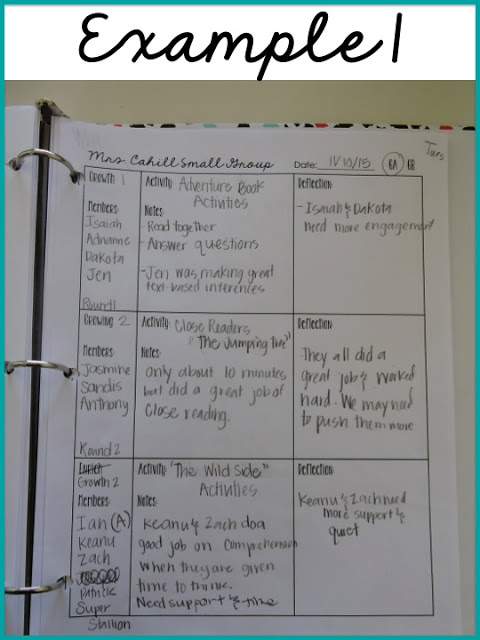 Example 1
Tues
Mrs. Cahill Small Group Date: 11/10/15 6A 6B
Growth 1
Members:
Isaiah
Adrianne
Dakota
Jen
Round 1
Activity: Adventure Book
Activities
Notes:
- Read together
- Answer questions
- Jen was making great
text-based inferences
Reflection:
- Isaiah & Dakota
need more engagement
Growing 2
Members:
Jasmine
Sandis
Anthony
Round 2
Activity: Close Readers
"The Jumping Tree"
Notes:
only about 10 minutes
but did a great job of
close reading.
Reflection:
They all did a
great job & worked
hard. We may need
to push them more
Growth 2
Members:
Ian (A)
Keanu
Zach
Patrick
Super
Stallion
Activity: "The Wild Side"
Activities
Notes:
Keanu & Zach do a
good job on comprehension
when they are given
time to think.
Need support & time
Reflection:
Keanu & Zach need
more support &
quiet